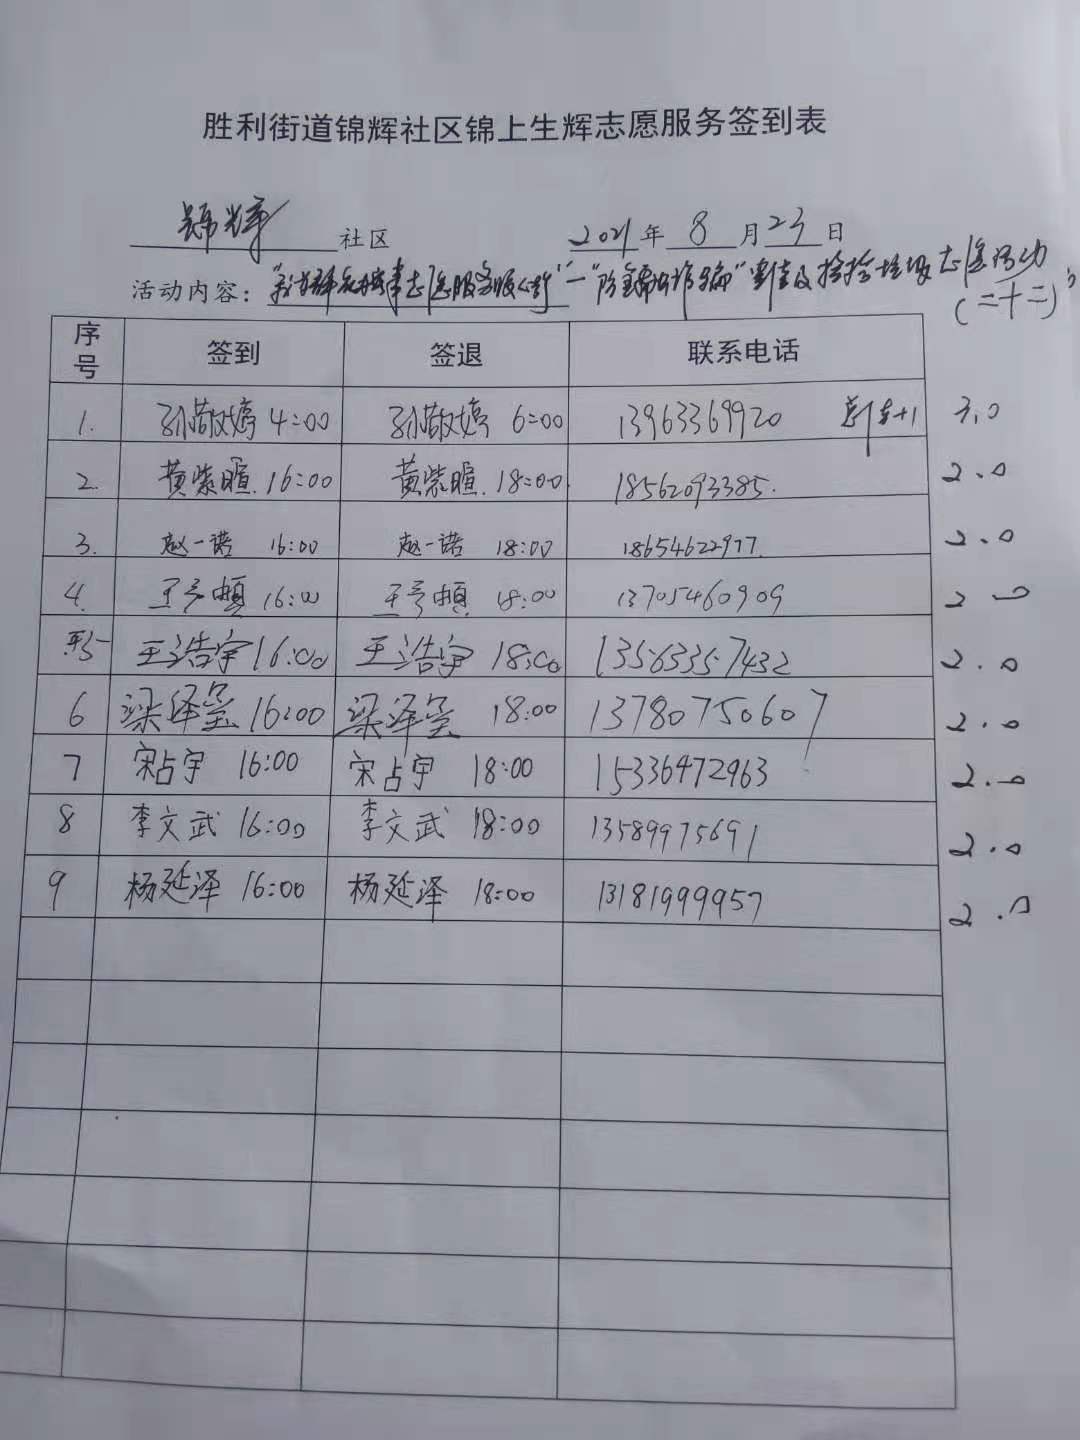 胜利街道锦辉社区锦上生辉志愿服务签到表
锦辉 社区 2021年 8 月 23 日
活动内容： 志愿服务 "防电信诈骗"宣传及捡拾垃圾志愿活动
(二十二)
序号 签到 签退 联系电话
1. 孙敬婷 4:00 孙敬婷 6:00 13963369920 +1 3.0
2. 黄紫暄. 16:00 黄紫暄. 18:00 18562093385. 2.0
3. 赵一诺 16:00 赵一诺 18:00 18654622977. 2.0
4. 16:00 18:00 13705460909 2.0
5 王浩宇 16:00 王浩宇 18:00 13563357432 2.0
6 梁泽 16:00 梁泽 18:00 13780750607 2.0
7 宋占宇 16:00 宋占宇 18:00 15336472963 2.0
8 李文武 16:00 李文武 18:00 13589975691 2.0
9 杨延泽 16:00 杨延泽 18:00 13181999957 2.0